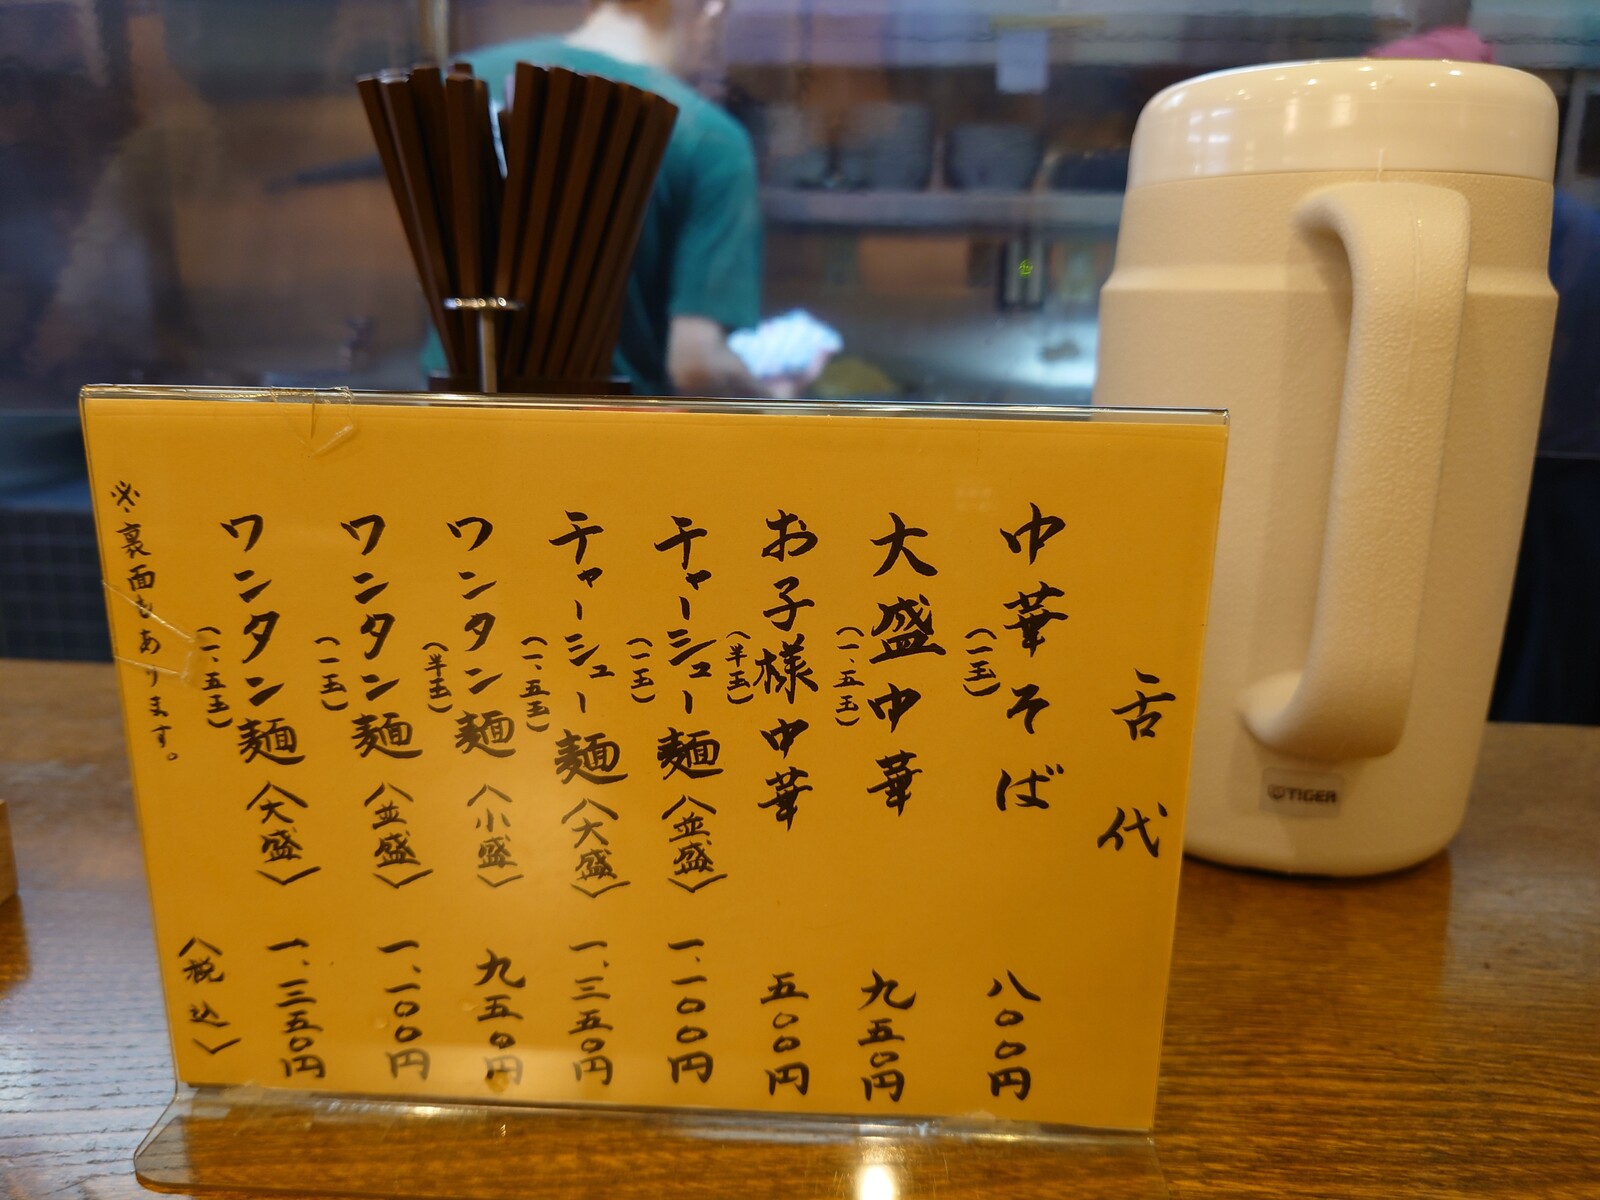 舌代
中華そば(一玉) 八〇〇円
大盛中華(一、五玉) 九五〇円
お子様中華(半玉) 五〇〇円
チャーシュー麺(一玉)〈並盛〉 一、一〇〇円
チャーシュー麺(一、五玉)〈大盛〉 一、三五〇円
ワンタン麺(半玉)〈小盛〉 九五〇円
ワンタン麺(一玉)〈並盛〉 一、一〇〇円
ワンタン麺(一、五玉)〈大盛〉 一、三五〇円
〈税込〉
※裏面もあります。
TIGER